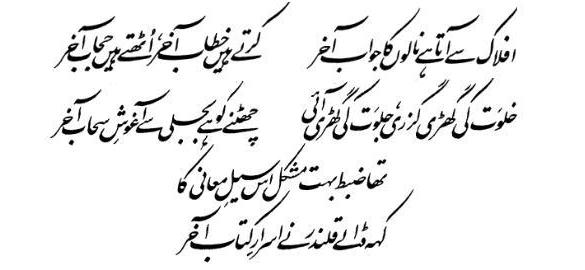 افلاک سے آتا ہے نالوں کا جواب آخر کرتے ہیں خطاب آخر، اُٹھتے ہیں حجاب آخر
خلوَت کی گھڑی گزری، جلوَت کی گھڑی آئی چھٹنے کو ہے بجلی سے آغوشِ سحاب آخر
تھا ضبط بہت مشکل اس سیلِ معانی کا
کہہ ڈالے قلندر نے اسرارِ کتاب آخر